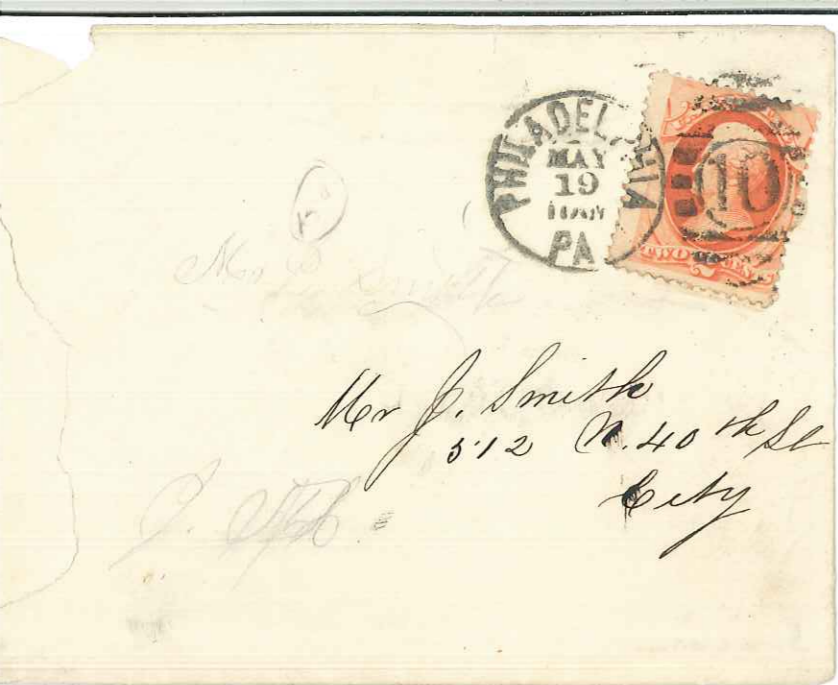 PHILADELPHIA
MAY
19
10AM
PA
10
TWO CENTS
2
Mr J. Smith
Mr J. Smith
512 N. 40th St
City